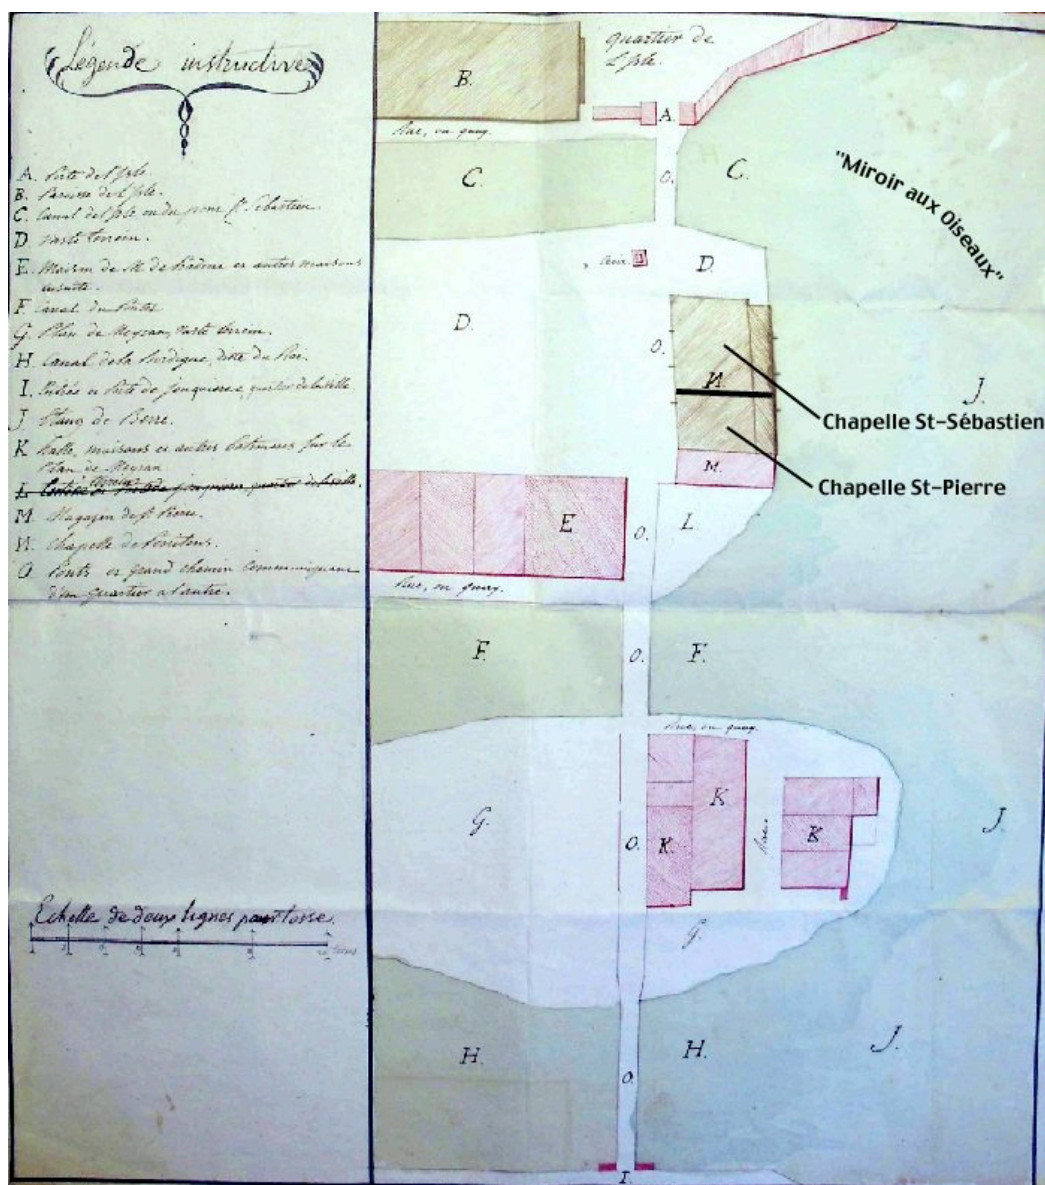 Légende instructive
A. Porte de l'Isle.
B. Paroisse de l'Isle.
C. Canal de l'Isle ou du pont St. Sébastien.
D. vaste terrein.
E. Maison de M. de et autres maisons
ensuite.
F. Canal du
G. Plan de Meyran, vaste terrein.
H. Canal de la Bordigue, dite du Roi.
I. Entrée et Porte de Jonquieres, quartier de la ville.
J. Etang de Berre.
K. halle, maisons et autres batiments sur le
Plan de Meyran
L. terrein
M. Magazin de St. Pierre.
N. Chapelle de Penitens.
O. Ponts et grand chemin communiquant
d'un quartier a l'autre.
Echelle de deux lignes pour toise.
toises
quartier de
L'Isle.
B.
A.
Rue, ou quay.
C.
O.
C.
"Miroir aux Oiseaux"
Croix
D.
D.
O.
N
J.
Chapelle St-Sébastien
M.
Chapelle St-Pierre
E
O.
L
Rue, ou quay.
F.
O.
F.
Rue, ou quay.
G.
K
O.
K.
Rue
K
J.
G.
H.
H.
J.
O.
I.